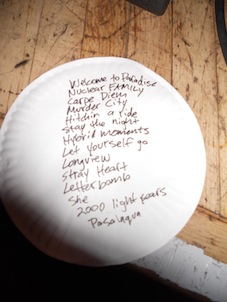 Welcome to Paradise
Nuclear FAMILY
Carpe Diem
Murder City
Hitchin a ride
Stay the night
Hybrid moments
Let yourself go
Longview
Stray Heart
Letterbomb
She
2000 light years
Pasalaqua